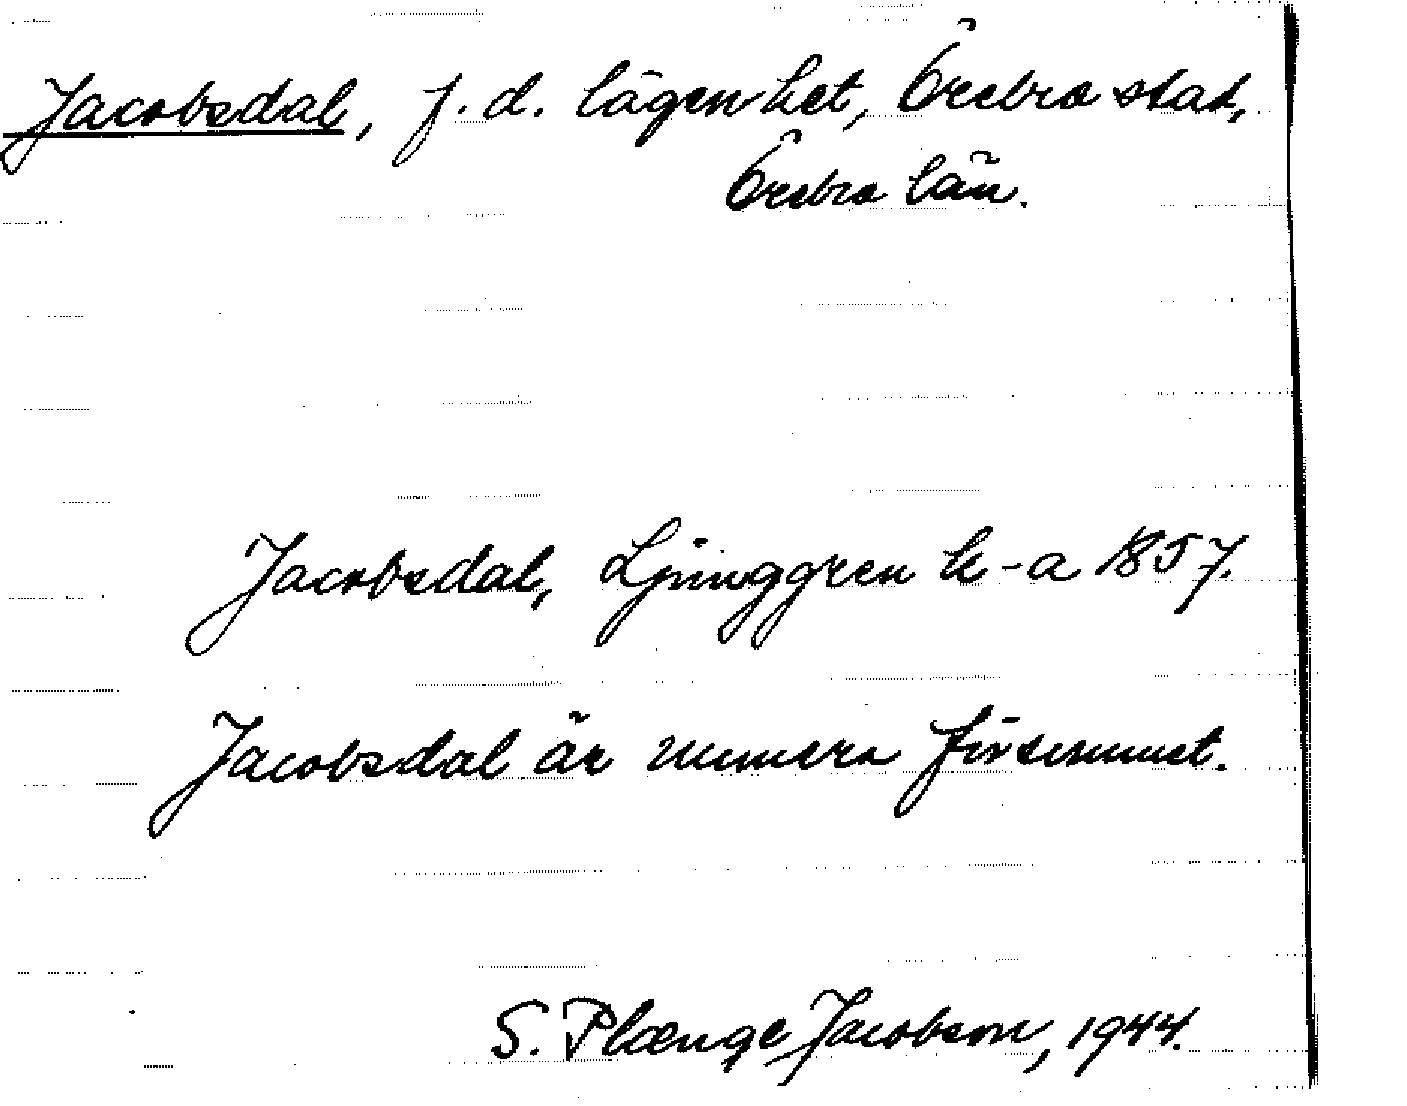 Jacobsdal, f. d. lägenhet, Örebro stad,
Örebro län.
Jacobsdal, Ljunggren k-a 1857.
Jacobsdal är numera försvunnet.
S. Plænge Jacobson, 1944.